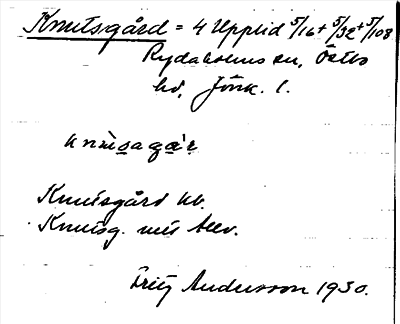 Knutsgård = 4 Upplid 5/16 + 5/32 + 5/108
Rydaholms sn, Östbo
hd, Jönk. l.
knùsagàr
Knutsgård kb.
Knutsg. mtl bev.
Fritz Andersson 1930.